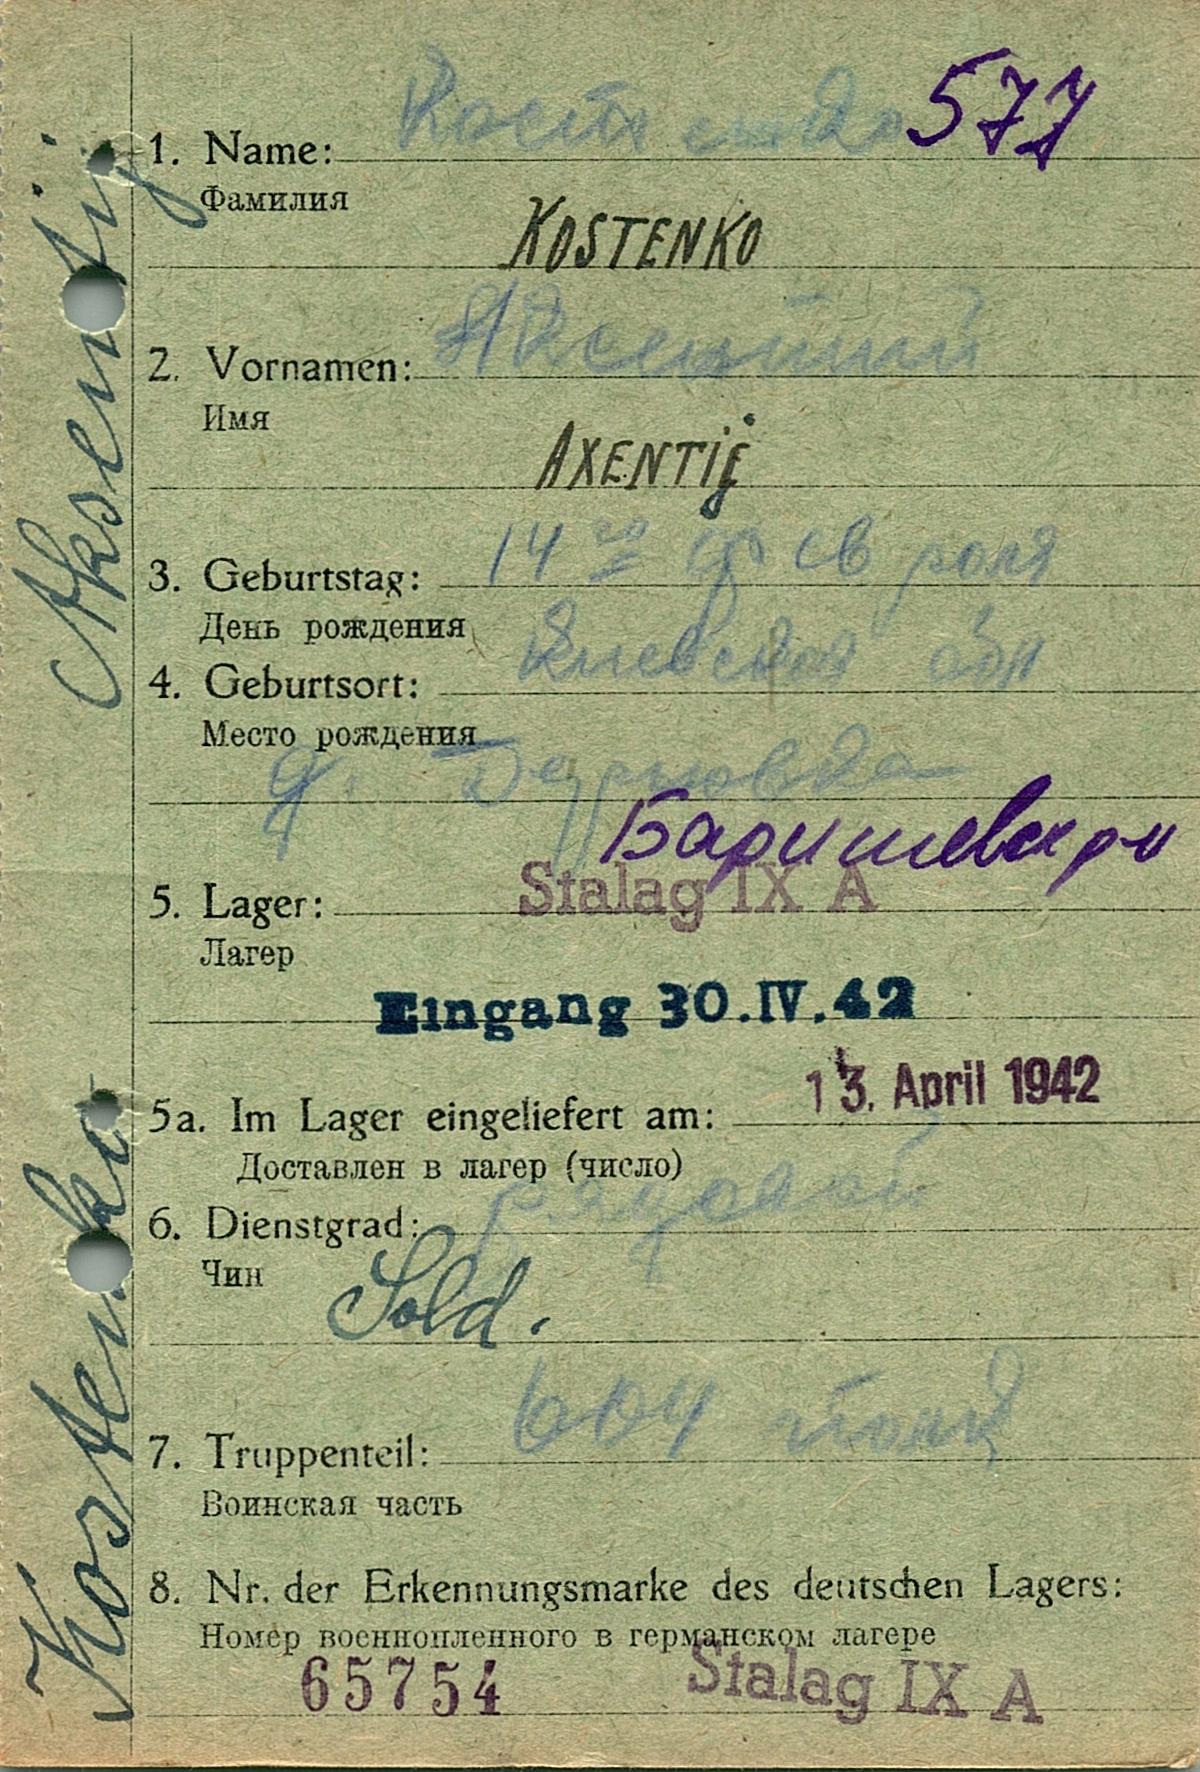 577
1. Name: Костенко
Фамилия
KOSTENKO
2. Vornamen: Аксентий
Имя
AXENTIJ
3. Geburtstag: 14го февроля
День рождения
4. Geburtsort: Киевская обл
Место рождения
Баришевск р-н
5. Lager: Stalag IX A
Лагер
Eingang 30.IV.42
5a. Im Lager eingeliefert am: 13. April 1942
Доставлен в лагер (число)
6. Dienstgrad: Рядовой
Чин
Sold.
7. Truppenteil: 604 полк
Воинская часть
8. Nr. der Erkennungsmarke des deutschen Lagers:
Номер военнопленного в германском лагере
65754 Stalag IX A
Kostenko Aksentij